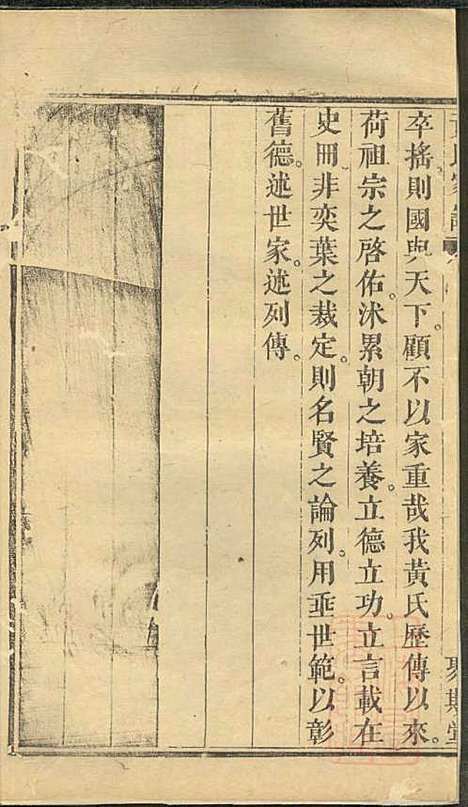 黃氏家譜
聚斯堂
卒搖則國與天下。顧不以家重哉我黃氏歷傳以來。
荷祖宗之啓佑。沐累朝之培養。立德立功。立言載在
史冊。非奕葉之裁定。則名賢之論列。用垂世範。以彰
舊德。述世家。述列傳。